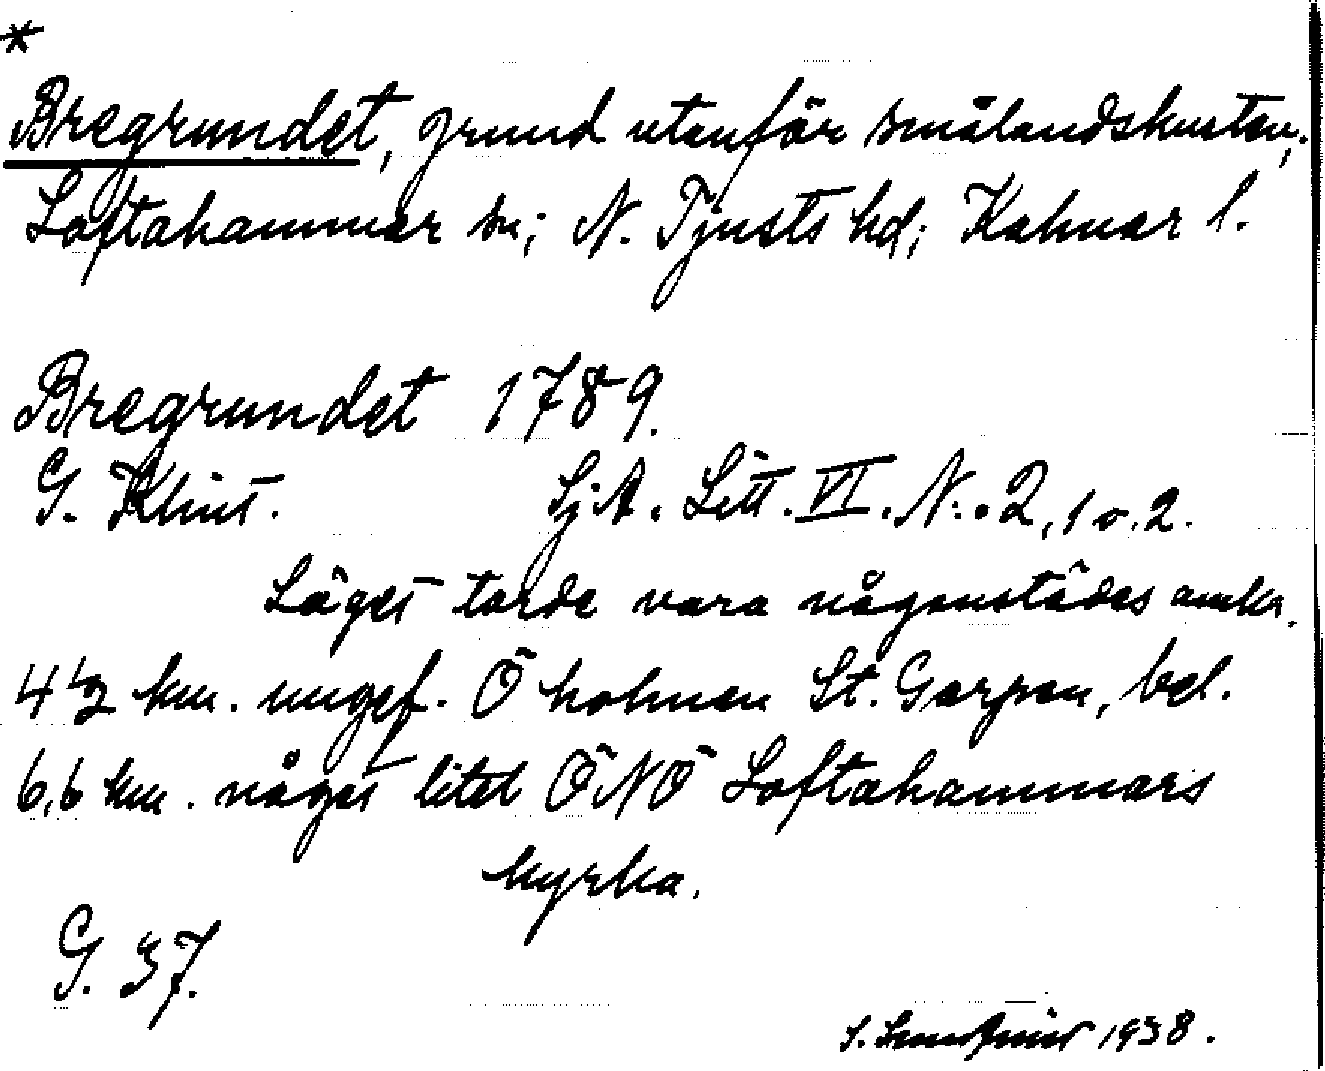 *
Bregrundet, grund utanför smålandskusten,
Loftahammar sn; N. Tjusts hd; Kalmar l.
Bregrundet 1789.
G. Klint. Sj.A. Litt. VI. N:o 2, 1 o. 2.
Läget torde vara någonstädes omkr.
4 1/2 km. ungef. Ö holmen St. Garpen, bel.
6,6 km. något litet ÖNÖ Loftahammars
kyrka.
G. 37.
S. 1938.